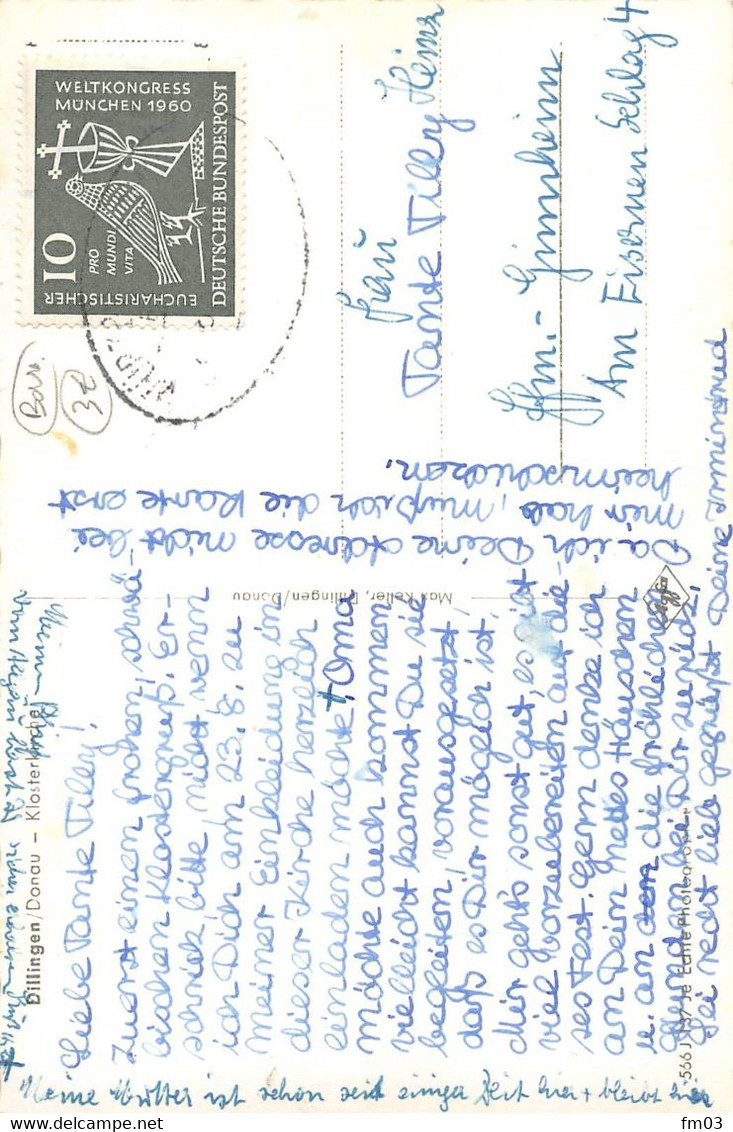 WELTKONGRESS
MÜNCHEN 1960
PRO
MUNDI
VITA
10
EUCHARISTISCHER
DEUTSCHE BUNDESPOST
32
Frau
Tante Tilly Heinz
Ffm.- Ginnheim
Am Eisernen Schlag 4
Da ich Deine Adresse nicht bei
mir hab, muß ich die Karte erst
heimschicken.
Max Keller, Dillingen/Donau
Agfa
Dillingen/Donau – Klosterkirche
Liebe Tante Tilly!
Zuerst einen frohen, schwä-
bischen Klostergruß. Er-
schrick bitte, nicht, wenn
ich Dich am 23.8. zu
meiner Einkleidung im
dieser Kirche herzlich
einladen möchte, Oma
möchte auch kommen
vielleicht kannst Du sie
begleiten, vorausgesetzt,
daß es Dir mögich ist.
Mir gehts sonst gut, es ist
viel vorzubereiten auf die-
ses Fest. Gern denke ich
an Dein nettes Häuschen
u. an den die fröhlichen
Stunden bei Dir zurück.
Sei recht lieb gegrüßt Deine Irmintrud
566 J 137 Je Echte Photographie
Meine Mutter ist schon seit einiger Zeit hier + bleibt hier
fm03